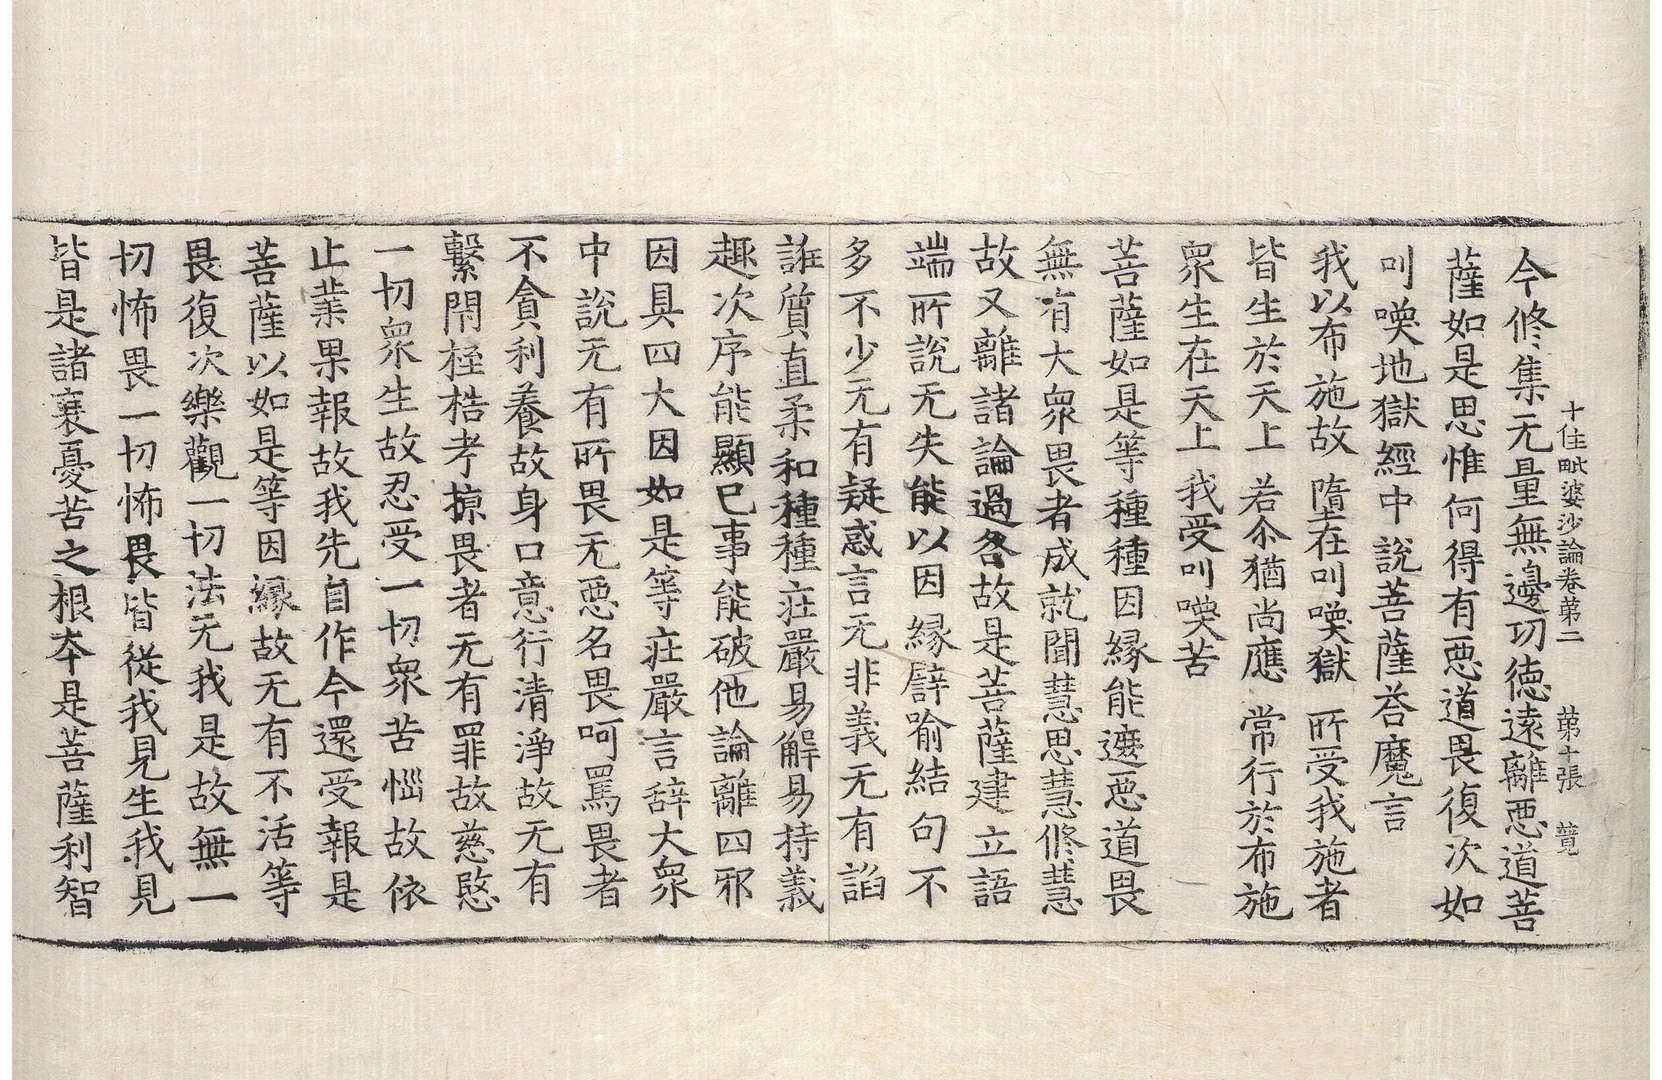 十住毗婆沙論卷苐二　苐十張　競
今修集无量無邊功徳遠離惡道菩
薩如是思惟何得有惡道畏復次如
叫喚地獄經中說菩薩荅魔言
我以布施故　墮在叫喚獄　所受我施者
皆生於天上　若尒猶尚應　常行於布施
衆生在天上　我受叫喚苦
菩薩如是等種種因縁能遮惡道畏
無有大衆畏者成就聞慧思慧修慧
故又離諸論過咎故是菩薩建立語
端所說无失能以因縁譬喻結句不
多不少无有疑惑言无非義无有謟
誰質直柔和種種莊嚴易解易持義
趣次序能顯已事能破他論離四邪
因具四大因如是等莊嚴言辞大衆
中說无有所畏无惡名畏呵罵畏者
不貪利養故身口意行清淨故无有
繫閇桎梏考掠畏者无有罪故慈愍
一切衆生故忍受一切衆苦惱故依
止業果報故我先自作今還受報是
菩薩以如是等因縁故无有不活等
畏復次樂觀一切法无我是故無一
切怖畏一切怖畏皆從我見生我見
皆是諸衰憂苦之根夲是菩薩利智